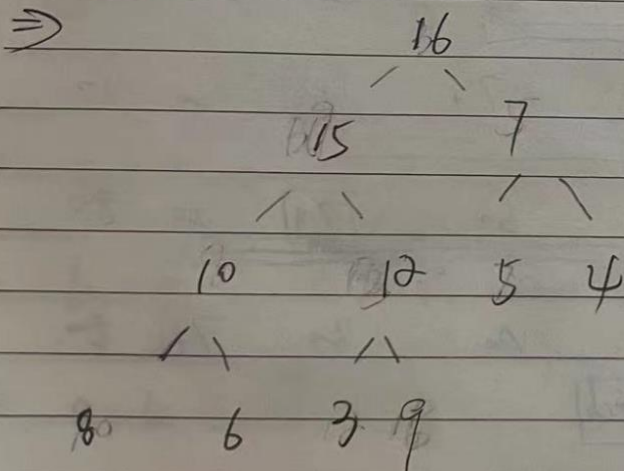 ⇒ 16
15 7
10 12 5 4
8 6 3 9